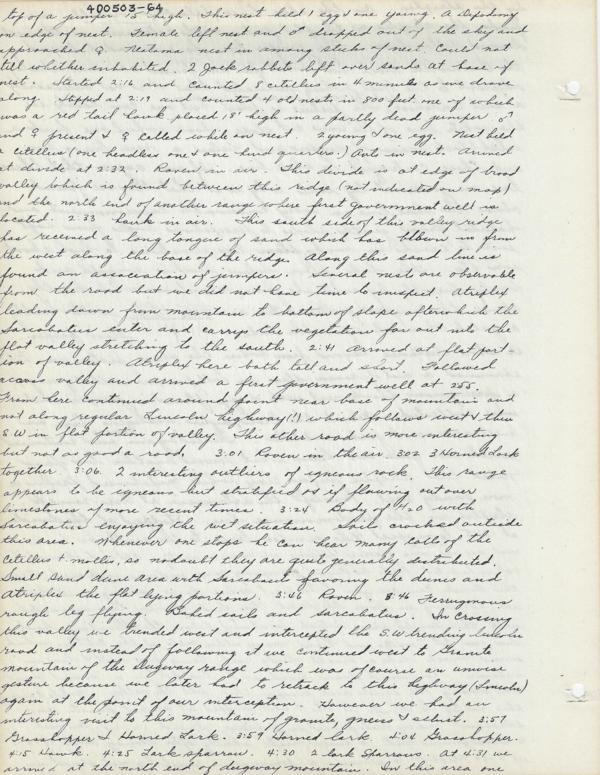 400503-64
top of a juniper 15' high. This nest held 1 egg & one young. A Dipodomy
on edge of nest. Female left nest and ♂ dropped out of the sky and
approached ♀. Neotoma nest in among sticks of nest. Could not
tell whether inhabited. 2 Jack rabbits left over sands at base of
nest. Started 2:16 and counted 8 citellus in 4 minutes as we drove
along. Stopped at 2:19 and counted 4 old nests in 800 feet one of which
was a red tail hawk placed 18' high in a partly dead juniper. ♂
and ♀ present & ♀ called while on nest. 2 young & one egg. Nest held
2 citellus (one headless one & one hind quarters.) Ants in nest. Arrived
at divide at 2:32. Raven in air. This divide is at edge of broad
valley which is found between this ridge (not indicated on map)
and the north end of another range where first government well is
located. 2:33 hawk in air. This south side of this valley ridge
has received a long tongue of sand which has blown in from
the west along the base of the ridge. Along this sand line is
found an association of junipers. Several nests are observable
from the road but we did not have time to inspect. Atriplex
leading down from mountain to bottom of slope after which the
Sarcobatus enter and carrys the vegetation far out into the
flat valley stretching to the south. 2:41 arrived at flat port-
ion of valley. Atriplex here both tall and short. Followed
across valley and arrived a first government well at 255.
From here continued around point near base of mountain and
not along regular Lincoln highway (!) which follows west & then
S.W in flat portion of valley. This other road is more interesting
but not as good a road. 3:01 Raven in the air. 302 3 Horned Lark
together. 3:06. 2 interesting outliers of igneous rock. This range
appears to be igneous but stratified as if flowing out over
limestones of more recent times. 3:24 Body of H2O with
Sarcobatus enjoying the wet situation. Soils cracked outside
this area. Whenever one stops he can hear many calls of the
Citellus t. mollis, so no doubt they are quite generally distributed.
Small sand dune area with Sarcobatus favoring the dunes and
Atriplex the flat lying portions. 3:46 Raven. 3:46 Ferruginous
rough leg flying. Baked soils and sarcobatus. In crossing
this valley we trended west and intercepted the S.W. trending Lincoln
road and instead of following it we continued west to Granite
mountain of the Dugway range which was of course an unwise
gesture because we later had to retrack to this highway (Lincoln)
again at the point of our interception. However we had an
interesting visit to this mountain of granity, gneiss & schist. 3:57
Grasshopper & Horned Lark. 3:59 Horned lark. 4:04 Grasshopper.
4:15 Hawk. 4:25 Lark sparrow. 4:30 2 lark Sparrows. At 4:31 we
arrived at the north end of dugway mountain. In this area one